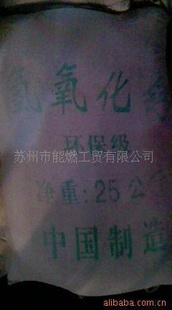 氢氧化
苏州市能燃工贸有限公司
环保级
净重:25公
中国制造
alibaba.com.cn